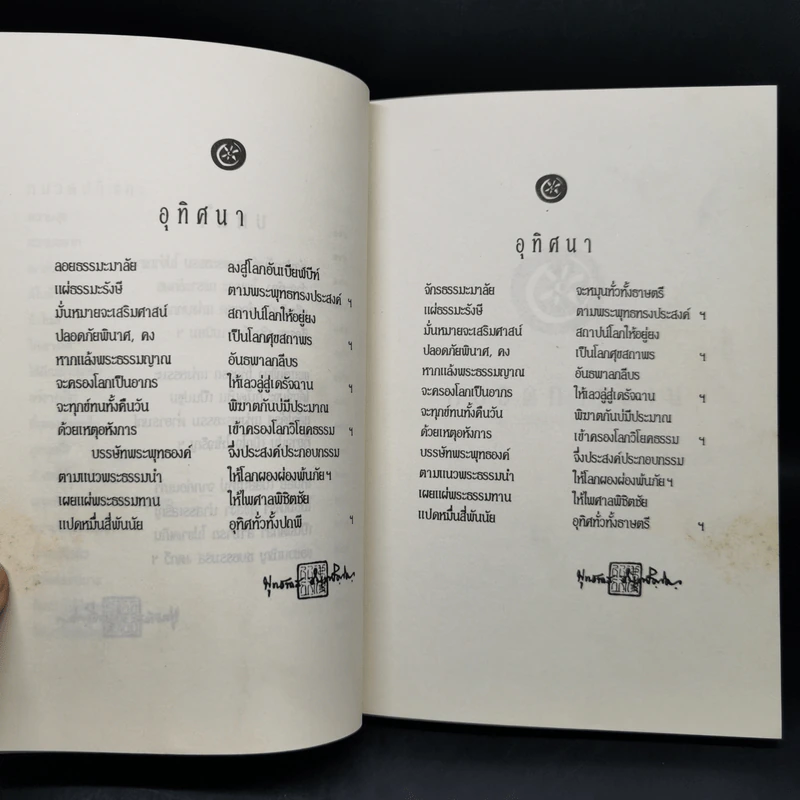 อุทิศนา
ลอยธรรมะมาลัย ลงสู่โลกอันเบียฬบีฑ์
แผ่ธรรมะรังษี ตามพระพุทธทรงประสงค์ ฯ
มั่นหมายจะเสริมศาสน์ สถาปน์โลกให้อยู่ยง
ปลอดภัยพินาศ, คง เป็นโลกศุขสถาพร ฯ
หากแล้งพระธรรมญาณ อันธพาลกลีบร
จะครองโลกเป็นอากร ให้เลวลู่สู่เดรัจฉาน ฯ
จะทุกข์ทนทั้งคืนวัน พิฆาตกันบ่มีประมาณ
ด้วยเหตุอหังการ เข้าครองโลกวิโยคธรรม ฯ
บรรษัทพระพุทธองค์ จึ่งประสงค์ประกอบกรรม
ตามแนวพระธรรมนำ ให้โลกผองผ่องพ้นภัย ฯ
เผยแผ่พระธรรมทาน ให้ไพศาลพิชิตชัย
แปดหมื่นสี่พันนัย อุทิศทั่วทั้งปถพี ฯ
อุทิศนา
จักรธรรมะมาลัย จะหมุนทั่วทั้งธาษตรี
แผ่ธรรมะรังษี ตามพระพุทธทรงประสงค์ ฯ
มั่นหมายจะเสริมศาสน์ สถาปน์โลกให้อยู่ยง
ปลอดภัยพินาศ, คง เป็นโลกศุขสถาพร ฯ
หากแล้งพระธรรมญาณ อันธพาลกลีบร
จะครองโลกเป็นอากร ให้เลวลู่สู่เดรัจฉาน ฯ
จะทุกข์ทนทั้งคืนวัน พิฆาตกันบ่มีประมาณ
ด้วยเหตุอหังการ เข้าครองโลกวิโยคธรรม ฯ
บรรษัทพระพุทธองค์ จึ่งประสงค์ประกอบกรรม
ตามแนวพระธรรมนำ ให้โลกผองผ่องพ้นภัย ฯ
เผยแผ่พระธรรมทาน ให้ไพศาลพิชิตชัย
แปดหมื่นสี่พันนัย อุทิศทั่วทั้งธาษตรี ฯ